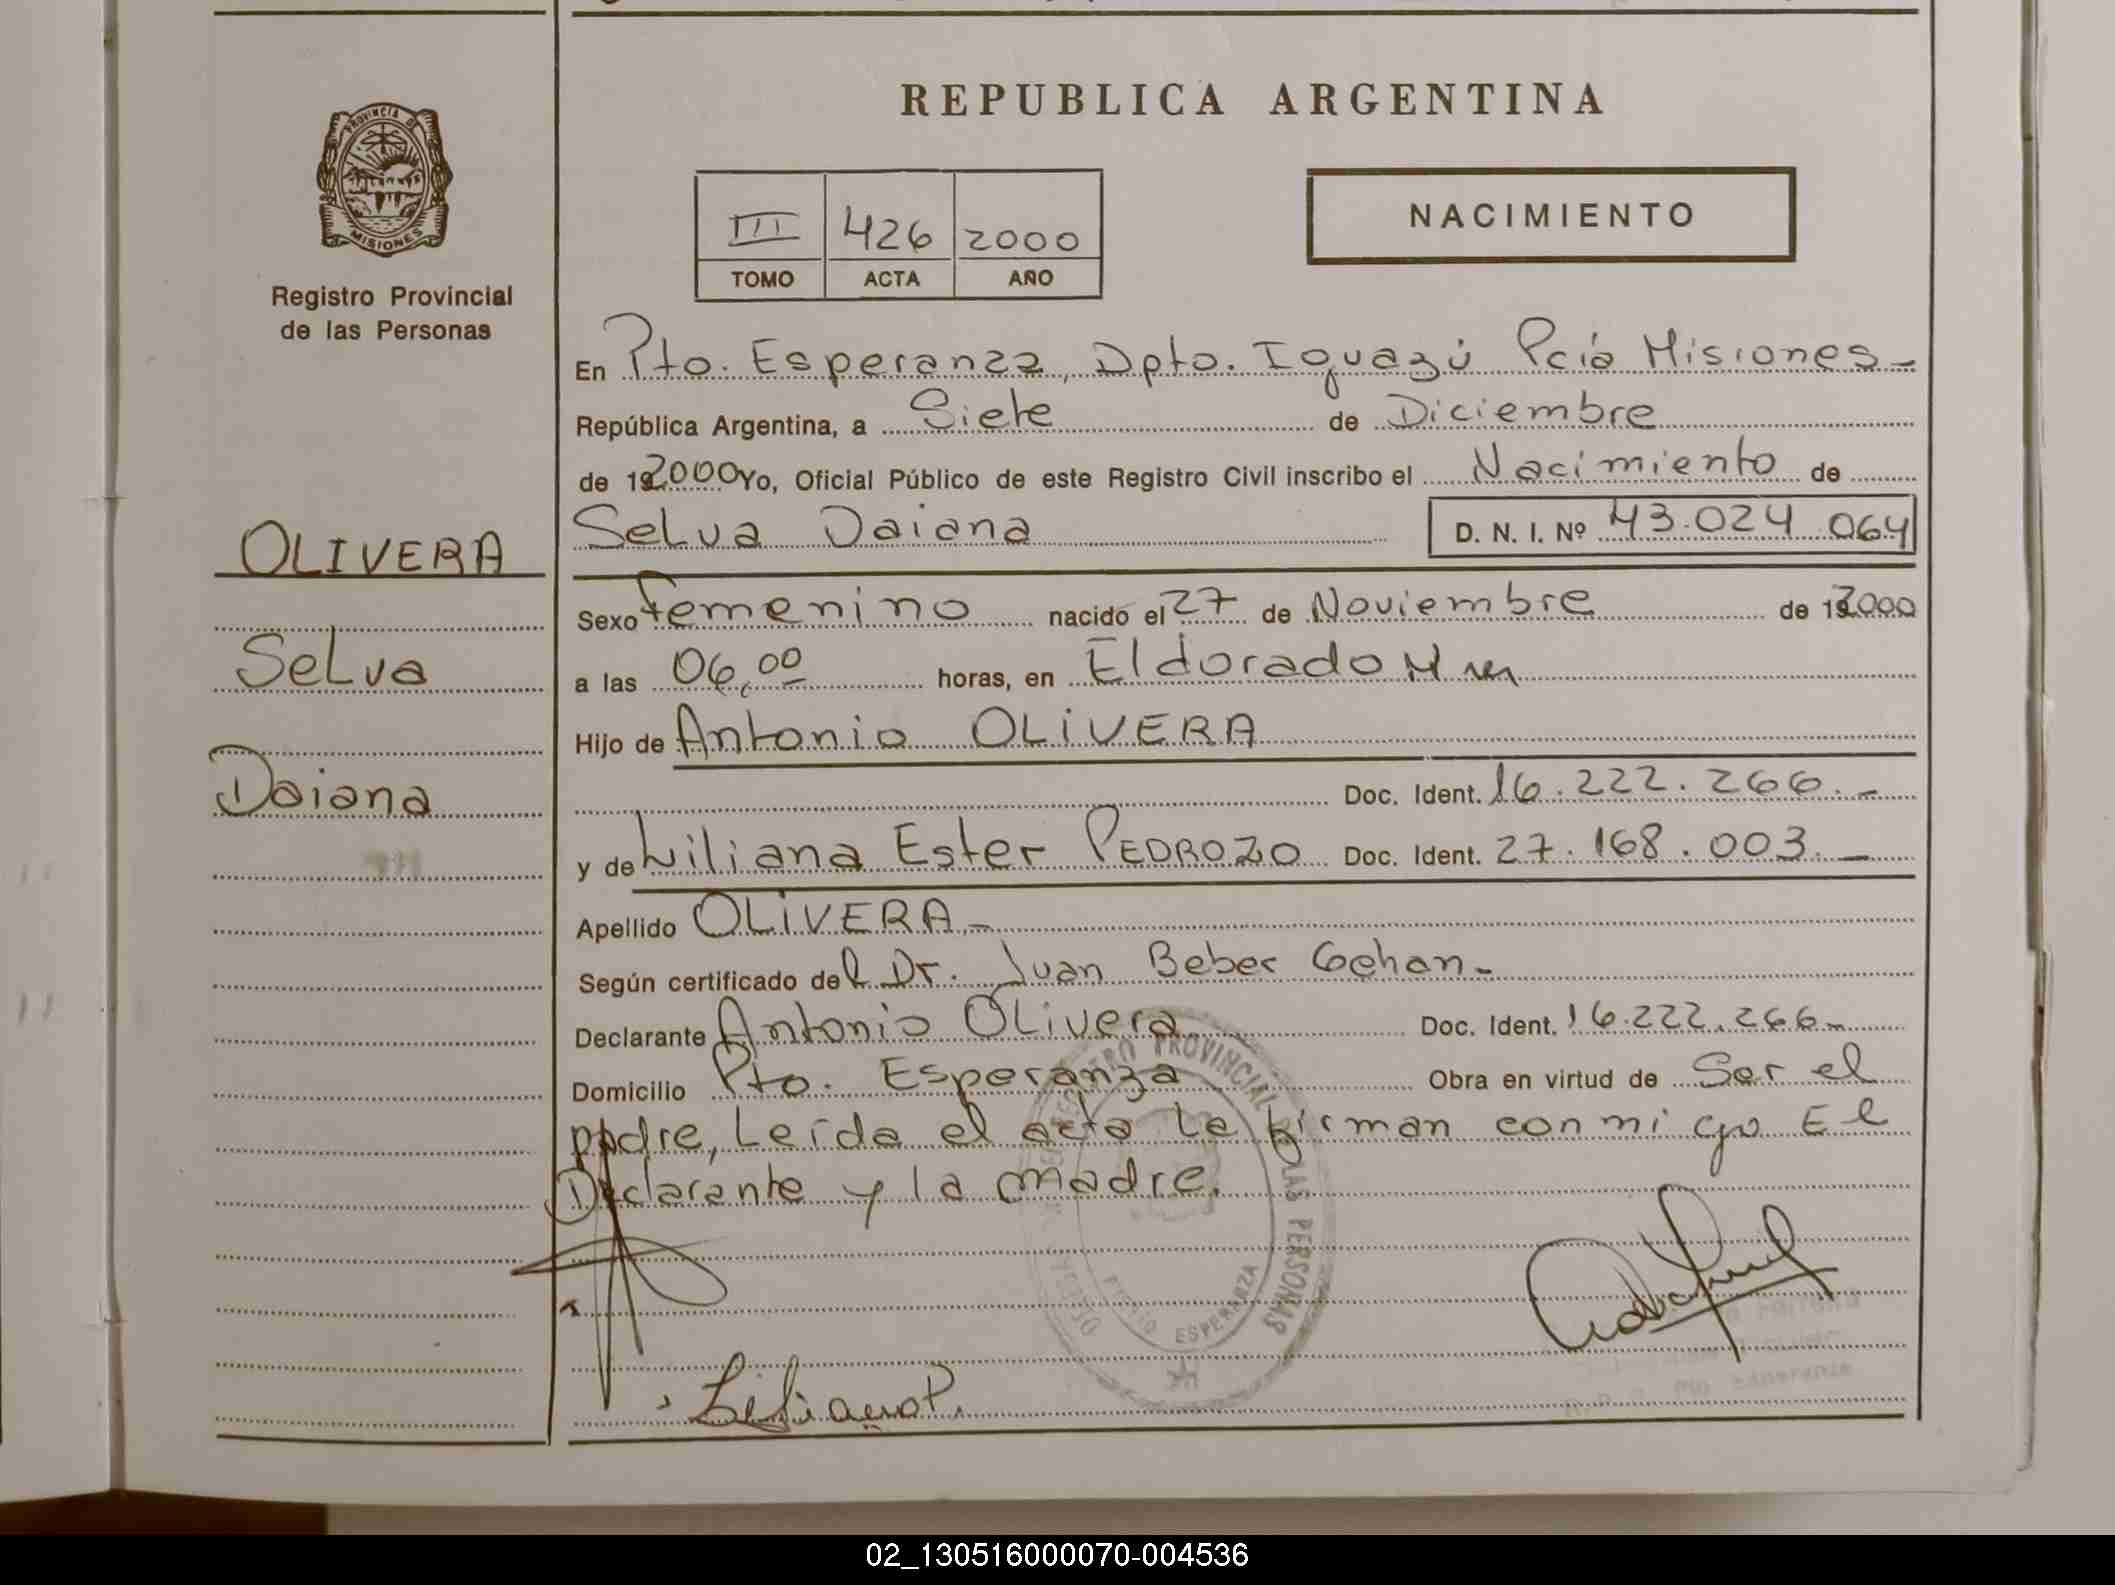 REPUBLICA ARGENTINA
PROVINCIA DE
MISIONES
Registro Provincial
de las Personas
III 426 2000
TOMO ACTA AÑO
NACIMIENTO
En Pto. Esperanza, Dpto. Iguazú Pcia Misiones-
República Argentina, a Siete de Diciembre
de 192000 Yo, Oficial Público de este Registro Civil inscribo el Nacimiento de
Selva Daiana D. N. I. Nº 43.024.064
OLIVERA
Selva
Daiana
Sexo Femenino nacido el 27 de Noviembre de 192000
a las 06,00 horas, en Eldorado
Hijo de Antonio OLIVERA
Doc. Ident. 16.222.266.-
y de Liliana Ester PEDROZO Doc. Ident. 27.168.003.-
Apellido OLIVERA-
Según certificado del Dr. Juan Beber Gehan-
Declarante Antonio Olivera Doc. Ident. 16.222.266-
Domicilio Pto. Esperanza Obra en virtud de Ser el
padre, Leída el acta la firman conmigo El
Declarante y la madre.
REGISTRO PROVINCIAL DE LAS PERSONAS
PUERTO ESPERANZA
Liliana P.
02_130516000070-004536